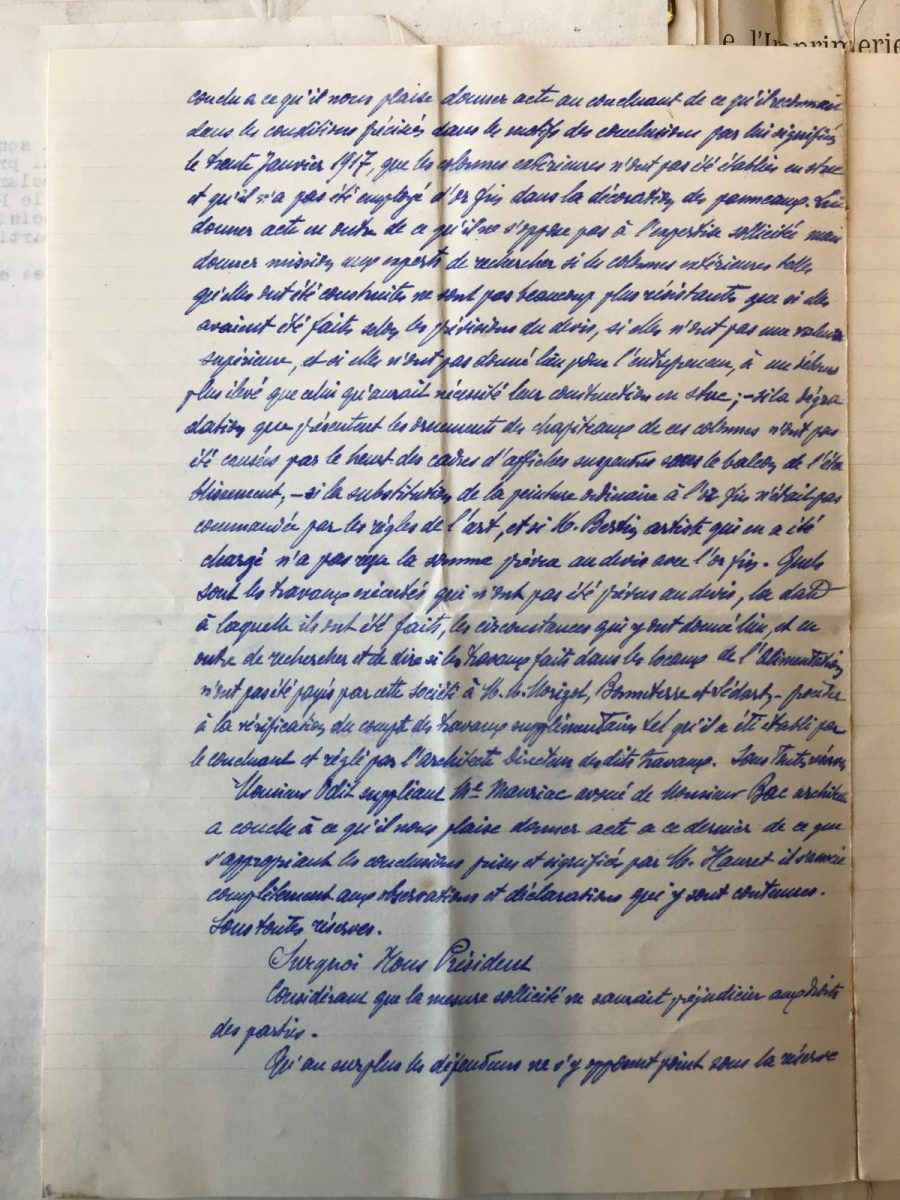 e l'Imprimerie
conclu a ce qu'il nous plaise donner acte au concluant de ce qu'il reconnait
dans les conditions précisées dans les motifs des conclusions par lui signifiées
le trente Janvier 1917, que les colonnes extérieures n'ont pas été établies en stuc
et qu'il n'a pas été employé d'or fin dans la décoration des panneaux. Lui
donner acte en outre de ce qu'il ne s'oppose pas à l'expertise sollicitée mais
donner mission aux experts de rechercher si les colonnes extérieures telles
qu'elles ont été construites ne sont pas beaucoup plus résistantes que si elles
avaient été faites selon les prévisions du devis, si elles n'ont pas une valeur
supérieure, et si elles n'ont pas donné lieu pour l'entrepreneur, à un débours
plus élevé que celui qu'aurait nécessité leur construction en stuc; - si la dégra
dation que présentent les ornements des chapiteaux de ces colonnes n'ont pas
été causés par le heurt des cadres d'affiches suspendus sous le balcon de l'éta
blissement, - si la substitution de la peinture ordinaire à l'or fin n'était pas
commandée par les règles de l'art, et si M. Bertin artiste qui en a été
chargé n'a pas reçu la somme prévue au devis avec l'or fin. Quels
sont les travaux exécutés qui n'ont pas été prévus au devis, la date
à laquelle ils ont été faits, les circonstances qui y ont donné lieu, et en
outre de rechercher et de dire si les travaux faits dans les locaux de l'Alimentation
n'ont pas été payés par cette société à M. M. Morizot, Bonneterre et Védart, -
à la vérification du compte des travaux supplémentaires tel qu'il a été établi par
le concluant et réglé par l'architecte Directeur des dits travaux. Sous toutes réserves
Monsieur Odit suppléant Me Mauriac avoué de Monsieur Bac architecte
a conclu à ce qu'il nous plaise donner acte a ce dernier de ce que
s'appropriant les conclusions prises et signifiées par M. Hauret il s'associe
complètement aux observations et déclarations qui y sont contenues.
Sous toutes réserves.
Sur quoi Nous Président
Considérant que la mesure sollicité ne saurait préjudicier aux droits
des parties.
Qu'au surplus les défendeurs ne s'y opposent point sous la réserve